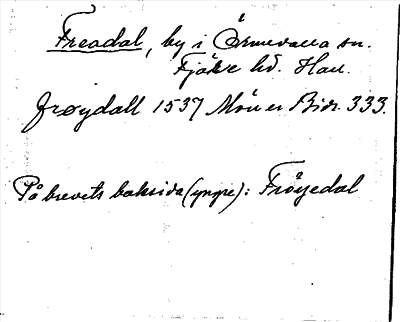 Freadal, by i Örmevalla sn.
Fjäre hd. Hall.
frøydall 1537 Monen Bidr. 333.
På brevets baksida (yngre): Fröyedal